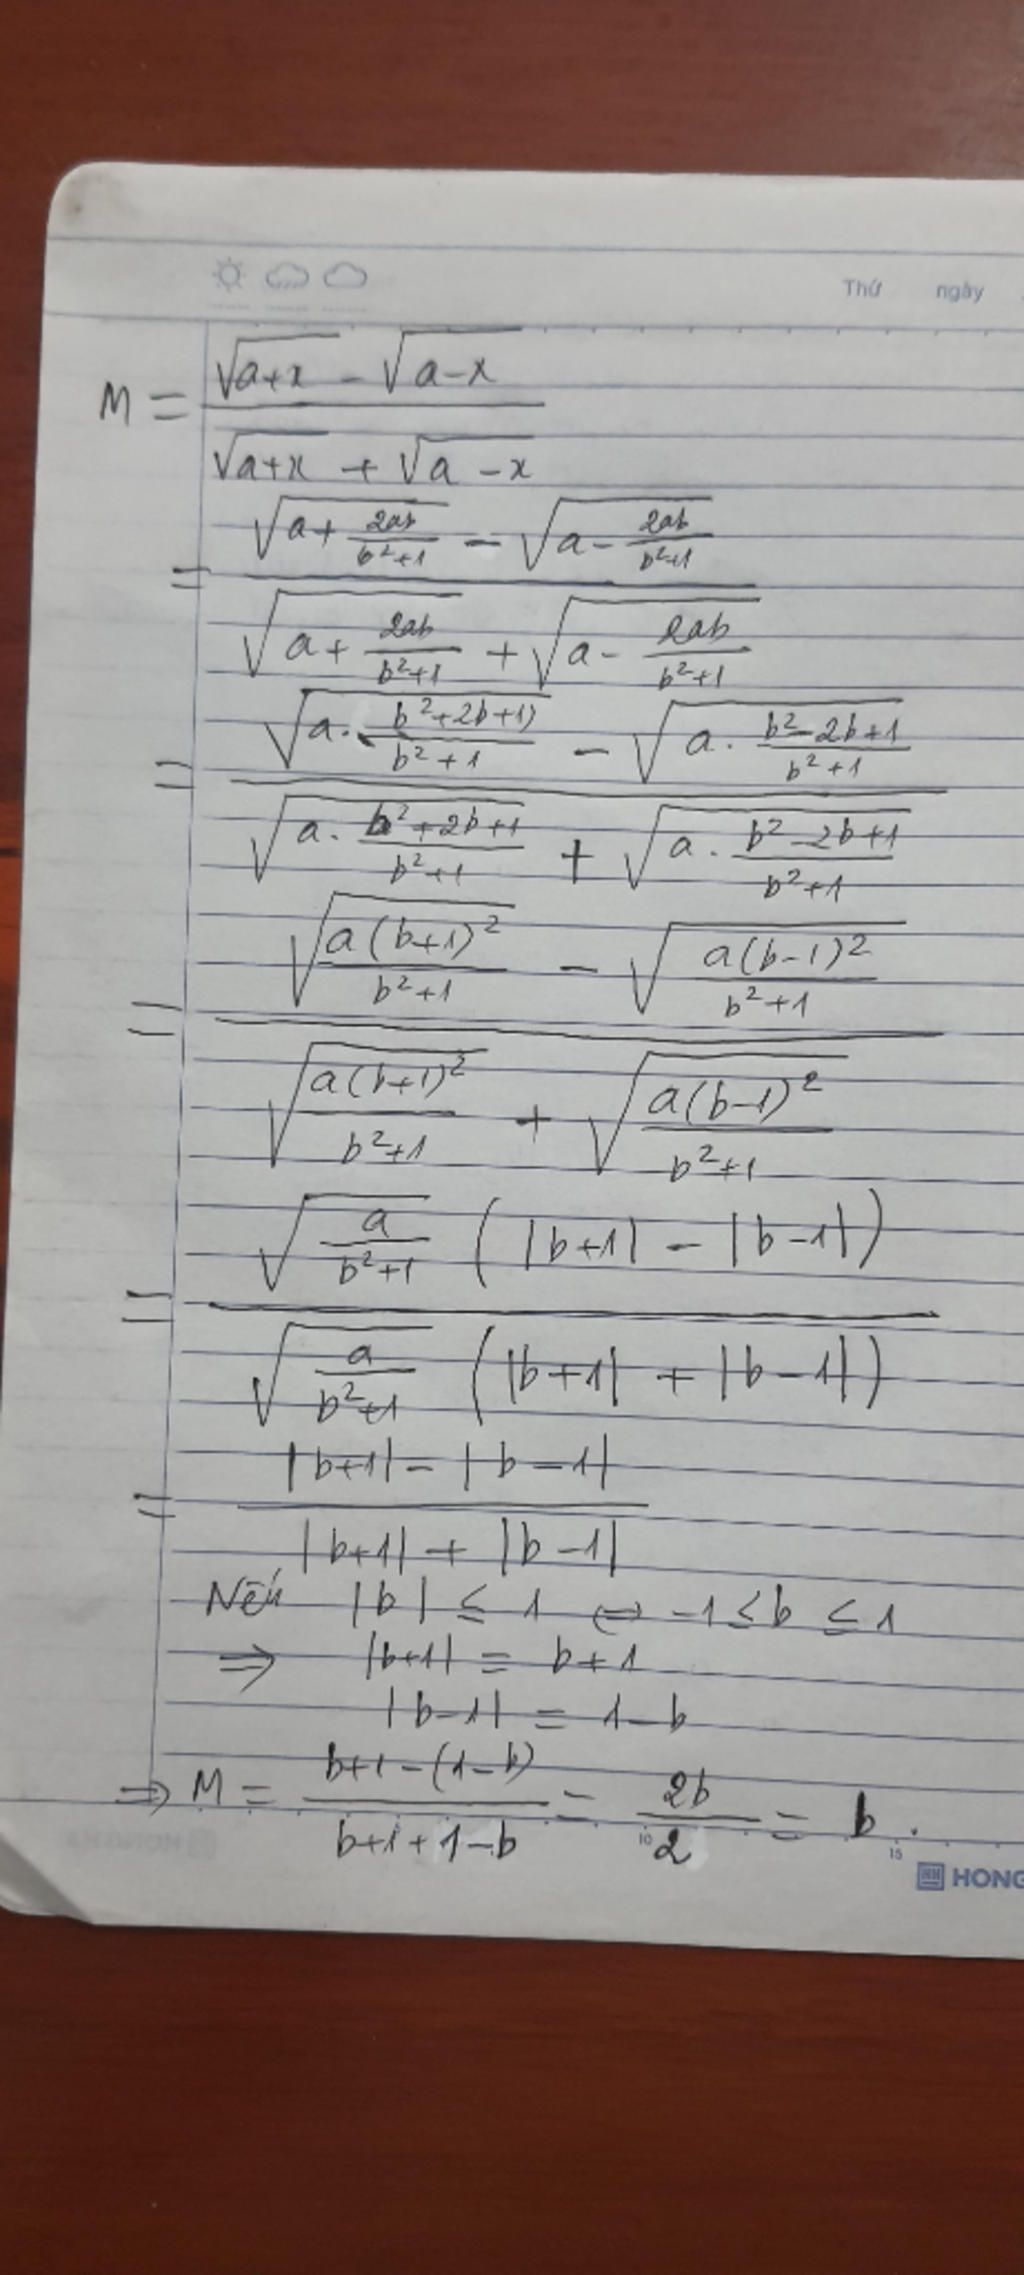 Thứ ngày
M = \frac{\sqrt{a+x} - \sqrt{a-x}}{\sqrt{a+x} + \sqrt{a-x}}
= \frac{\sqrt{a+\frac{2ab}{b^2+1}} - \sqrt{a-\frac{2ab}{b^2+1}}}{\sqrt{a+\frac{2ab}{b^2+1}} + \sqrt{a-\frac{2ab}{b^2+1}}}
= \frac{\sqrt{a.\frac{b^2+2b+1)}{b^2+1}} - \sqrt{a.\frac{b^2-2b+1}{b^2+1}}}{\sqrt{a.\frac{b^2+2b+1}{b^2+1}} + \sqrt{a.\frac{b^2-2b+1}{b^2+1}}}
= \frac{\sqrt{\frac{a(b+1)^2}{b^2+1}} - \sqrt{\frac{a(b-1)^2}{b^2+1}}}{\sqrt{\frac{a(b+1)^2}{b^2+1}} + \sqrt{\frac{a(b-1)^2}{b^2+1}}}
= \frac{\sqrt{\frac{a}{b^2+1}} (|b+1| - |b-1|)}{\sqrt{\frac{a}{b^2+1}} (|b+1| + |b-1|)}
= \frac{|b+1| - |b-1|}{|b+1| + |b-1|}
Nếu |b| ≤ 1 ⇔ -1 ≤ b ≤ 1
⇒ |b+1| = b+1
|b-1| = 1-b
⇒ M = \frac{b+1-(1-b)}{b+1+1-b} = \frac{2b}{2} = b.
10 15
HH HONG